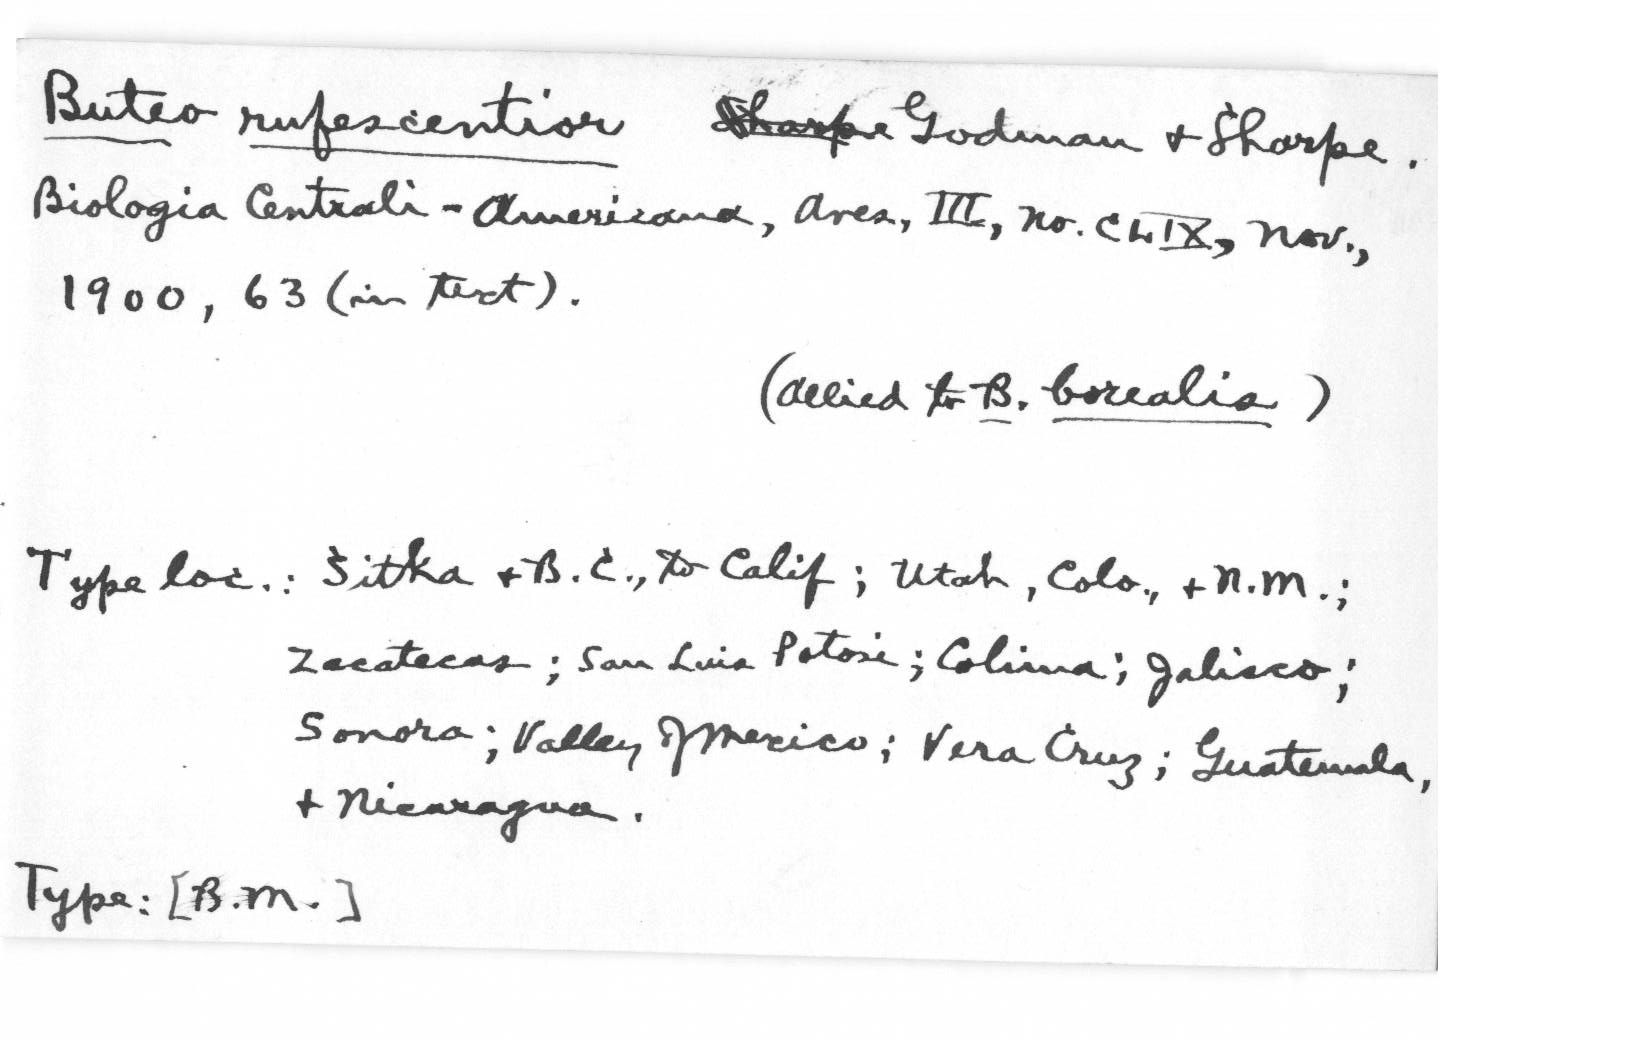 Buteo rufescentior Sharpe Godman + Sharpe.
Biologia Centrali-Americana, Aves, III, no. CLIX, Nov.,
1900, 63 (in text).
(allied to B. borealis)
Type loc.: Sitka + B.C., to Calif; Utah, Colo., + N.M.;
Zacatecas; San Luis Potosi; Colima; Jalisco;
Sonora; Valley of Mexico; Vera Cruz; Guatemala,
+ Nicaragua.
Type: [B.M.]